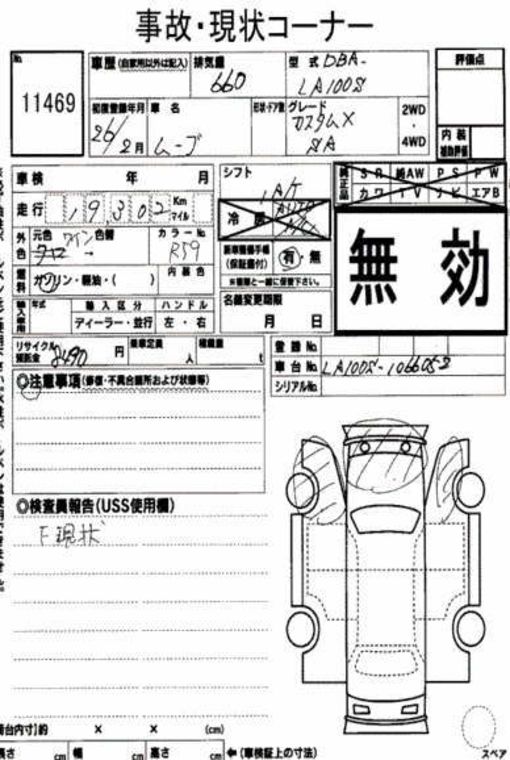 事故・現状コーナー
No.
11469
車歴 (自家用以外は記入) 排気量 660
型式 DBA-
LA100S
評価点
初度登録年月 26/2月
車名 ムーブ
形状・ドア数
グレード カスタムX
SA
2WD
・
4WD
内装
補助評価
車検 年 月
走行 19,302 Km
マイル
シフト
IA/T
冷房
純正品
SR 純AW PS PW
カワ TV ナビ エアB
無効
外色 元色 ワイン 色替 →
カラーNo. R59
燃料 ガソリン・軽油・( ) 内装色
新車整備手帳
(保証書付) 有・無
※書類と一緒に保管下さい。
輸入車用 年式 輸入区分 ハンドル
ディーラー・並行 左・右
名義変更期限
月 日
リサイクル
預託金 8490 円 乗車定員 人 積載量 t
登録No.
車台No. LA100S-1066052
シリアルNo.
◎注意事項(修復・不具合箇所および状態等)
◎検査員報告(USS使用欄)
F現状
荷台内寸)約 × × (cm)
長さ cm 幅 cm 高さ cm ←(車検証上の寸法)
スペア